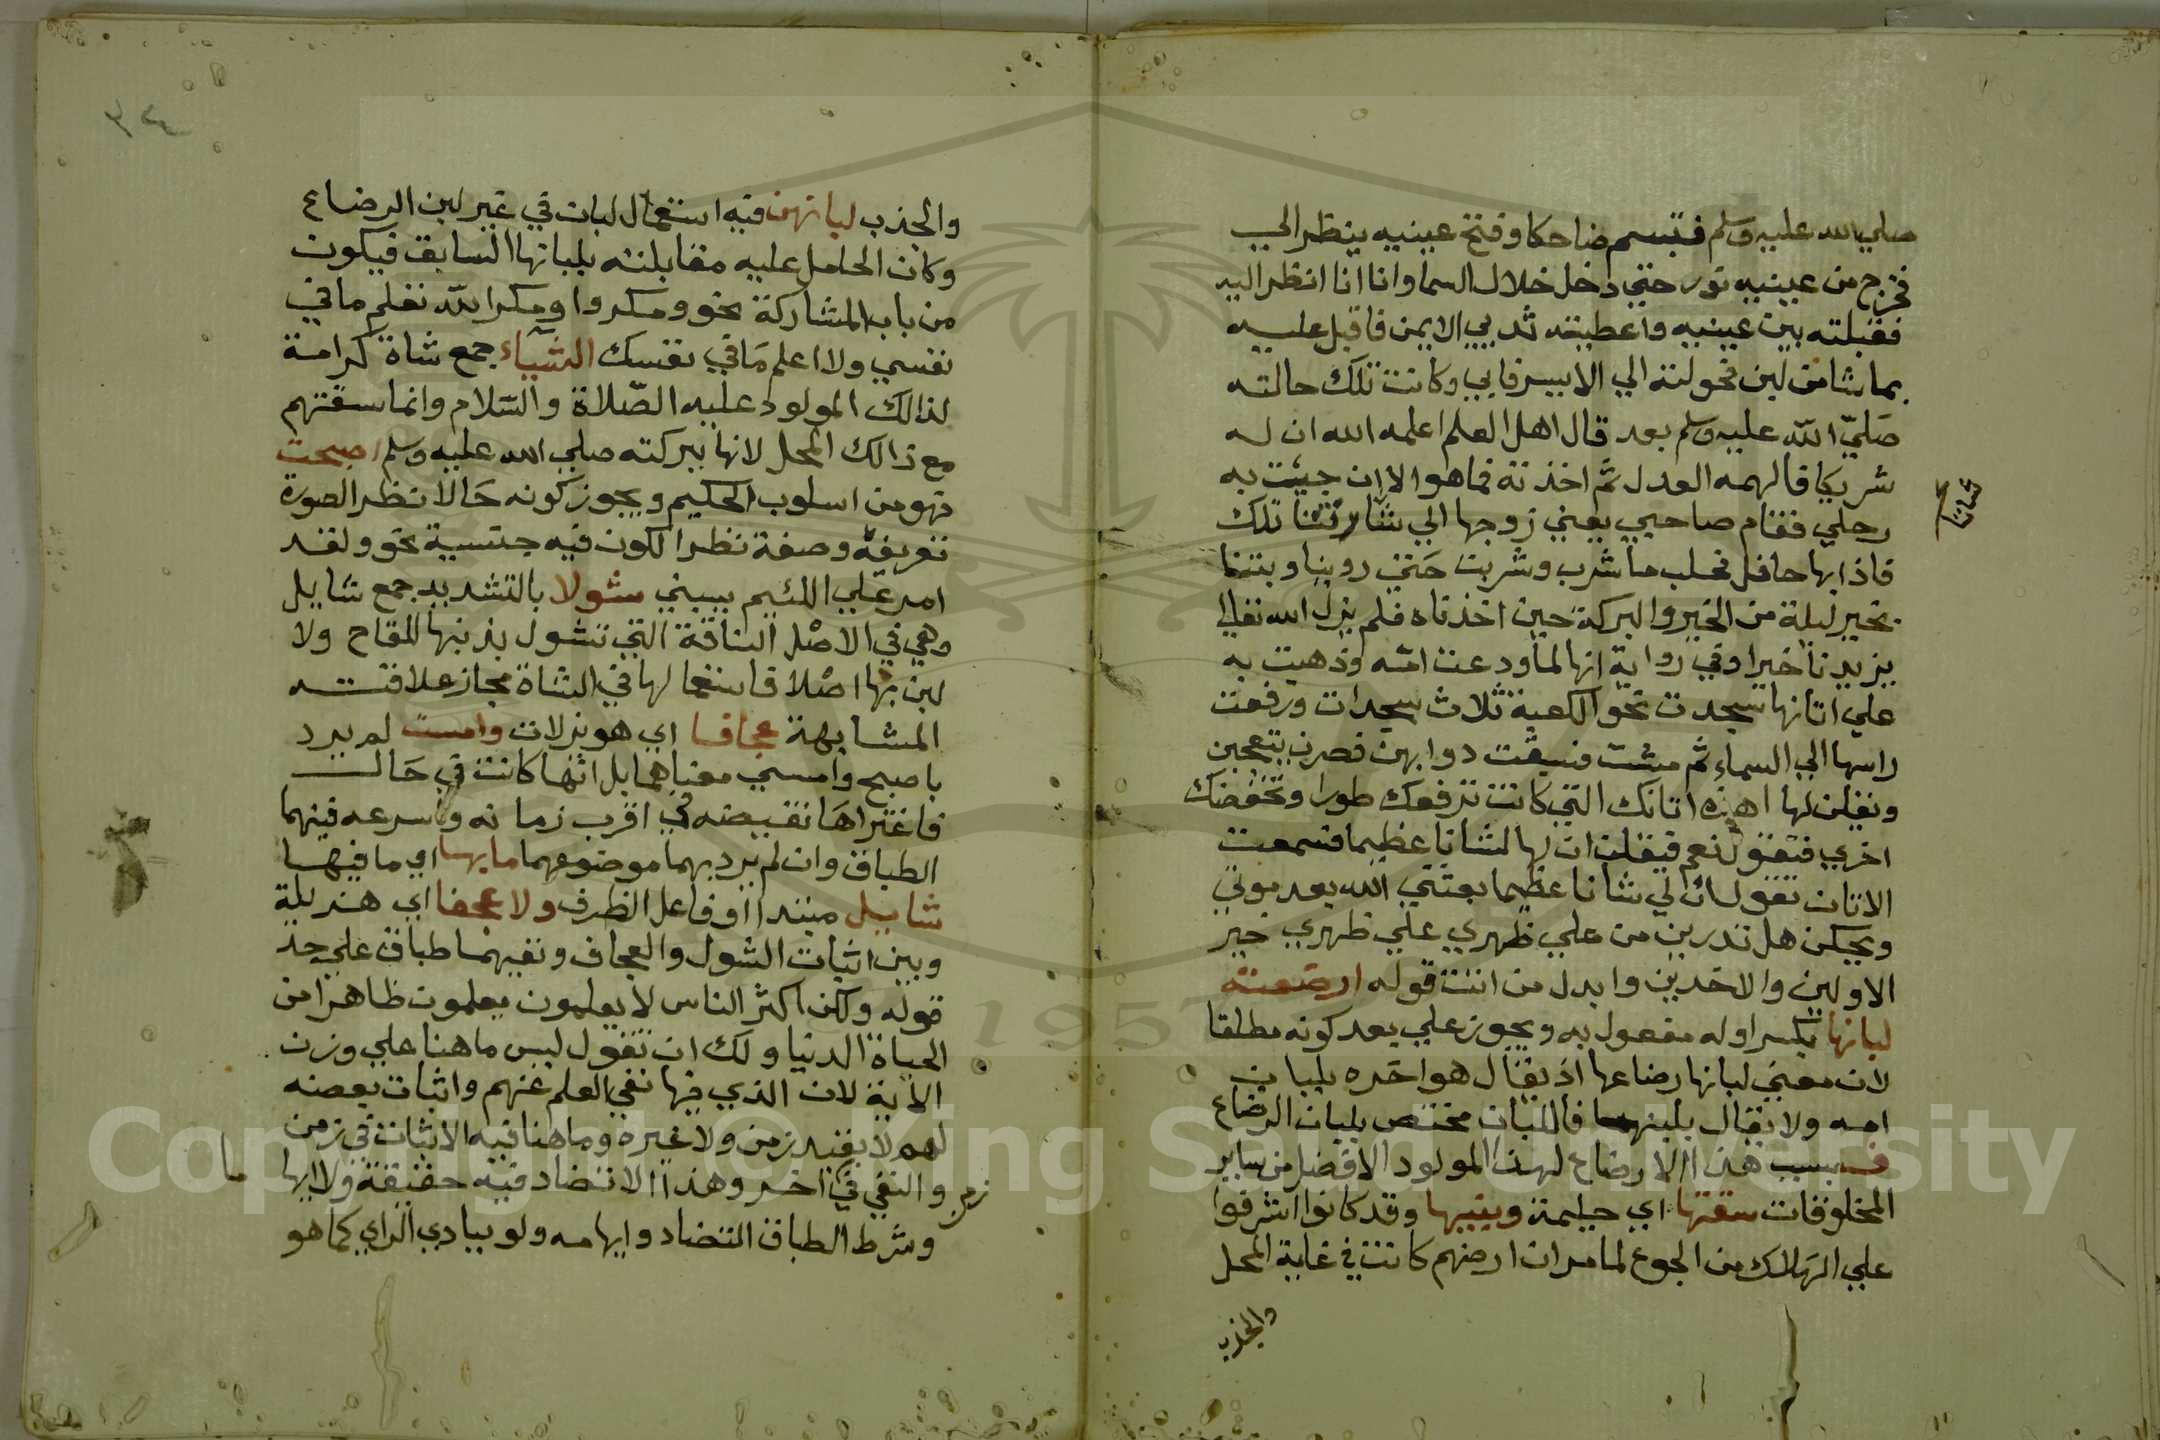 صلي الله عليه وسلم فتبسم ضاحكا وفتح عينيه ينظر الي
فخرج من عينيه نور حتي دخل خلال السما وانا انا انظر اليه
فقبلته بين عينيه واعطيته ثديي الايمن فاقبل عليه
بما شا من لبن فحولته الي الايسر فابي وكانت تلك حالته
صلي الله عليه وسلم بعد قال اهل العلم اعلمه الله ان له
شريكا فالهمه العدل ثم اخذته فما هو الا ان جيت به
رحلي فقام صاحبي يعني زوجها الي شارفنا تلك
شاتنا
فاذا بها حافل فحلب ما شرب وشربت حتي روينا وبتنا
بخير ليلة من الخير والبركة حين اخذناه فلم يزل الله تعالي
يزيدنا خيرا وفي رواية انها لما ودعت امه وذهبت به
علي اتانها سجدت نحو الكعبة ثلاث سجدات ورفعت
راسها الي السماء ثم مشت فسبقت دوابهن فصرن يتعجبن
ويقلن لها اهذه اتانك التي كانت ترفعك طورا وتخفضك
اخري فتقول نعم فيقلن ان لها لشانا عظيما فسمعت
الاتان تقول ان لي شانا عظيما بعثني الله بعد موتي
ويحكن هل تدرين من علي ظهري علي ظهري خير
الاولين والاخرين وابدل من اتت قوله ارضعته
لبانها بكسر اوله مفعول به ويجوز علي بعد كونه مطلقا
لان معني لبانها رضاعها اذ يقال هو اخوه بلبان
امه ولا يقال بلبنها فاللبان مختص بلبان الرضاع
فبسبب هذا الارضاع لهذا المولود الافضل من ساير
المخلوقات سقتها اي حليمة وبنيها وقد كانوا اشرفوا
علي الهلاك من الجوع لما مر ان ارضهم كانت في غاية المحل
والجذب
والجذب لبانهن فيه استعمال لبان في غير لبن الرضاع
وكان الحامل عليه مقابلته بلبانها السابق فيكون
من باب المشاركة نحو ومكروا ومكر الله تعلم ما في
نفسي ولا اعلم ما في نفسك الشياء جمع شاة كرامة
لذالك المولود عليه الصلاة والسلام وانما سقتهم
مع ذالك المحل لانها ببركته صلي الله عليه وسلم اصبحت
فهو من اسلوب الحكيم ويجوز كونه حالا نظرا لصورة
تعريفه وصفة نظرا لكون فيه جنسية نحو ولقد
امر علي اللئيم يسبني شولا بالتشديد جمع شايل
وهي في الاصل الناقة التي تشول بذنبها للقاح ولا
لبن بها اصلا فاستعمالها في الشاة مجاز علاقته
المشابهة عجافا اي هو نزلات وامست لم يرد
باصبح وامسي معناهما بل انها كانت في حالـــ
فاعتراها نقيضه في اقرب زمانه واسرعه ففيهما
الطباق وان لم يرد بهما موضوعهما ما بها اي ما فيها
شايل مبتدا او فاعل الظرف ولا عجفا اي هزيلة
وبين اثبات الشول والعجاف ونفيهما طباق علي حد
قوله ولكن اكثر الناس لا يعلمون يعلمون ظاهرا من
الحياة الدنيا ولك ان تقول ليس ما هنا علي وزن
الاية لان الذي فيها نفي العلم عنهم واثبات بعضه
لهم لا بقيد زمن ولا غيره وما هنا فيه الاثبات في زمن
زمن والنفي في اخر وهذا لا تضاد فيه حقيقة ولا ايهاما
وشرط الطباق التضاد وايهامه ولو ببادي الراي كما هو